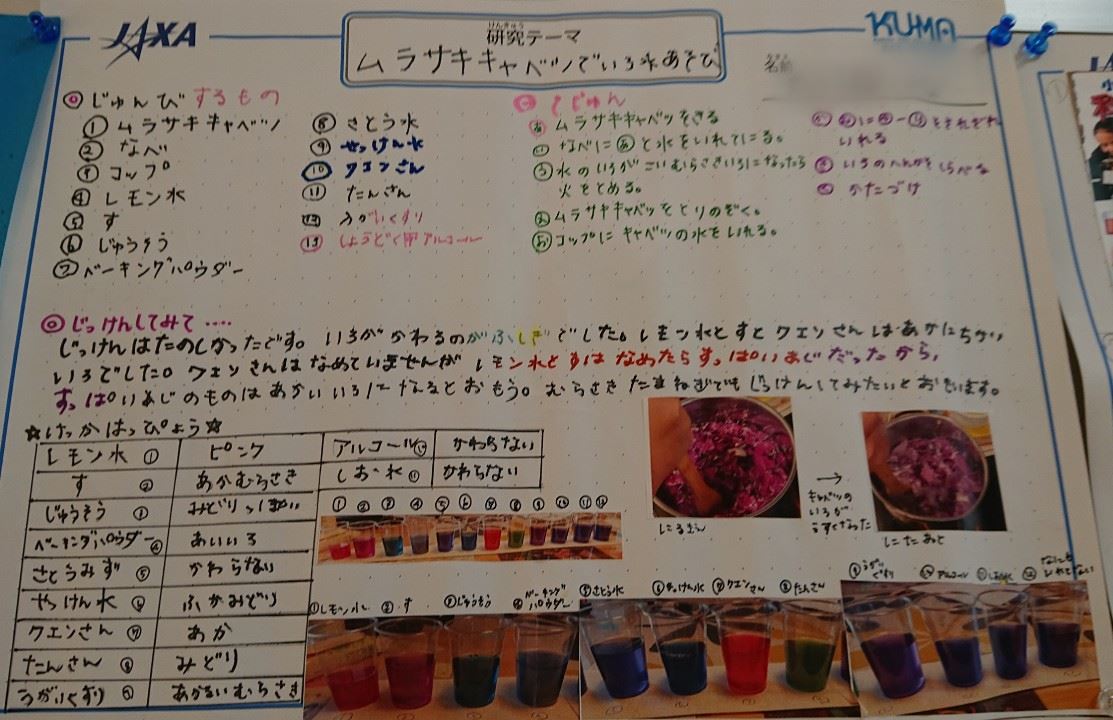 JAXA
KUMA
けんきゅう
研究テーマ
ムラサキキャベツでいろ水あそび
名前
◎じゅんびするもの
① ムラサキキャベツ
② なべ
③ コップ
④ レモン水
⑤ す
⑥ じゅうそう
⑦ ベーキングパウダー
⑧ さとう水
⑨ せっけん水
⑩ クエンさん
⑪ たんさん
⑫ うがいぐすり
⑬ しょうどく用アルコール
てじゅん
あ ムラサキキャベツをきる
い なべにあと水をいれてにる。
う 水のいろがこいむらさきいろになったら
火をとめる。
え ムラサキキャベツをとりのぞく。
お コップにキャベツの水をいれる。
いれる
いろのへんかをしらべる
かたづけ
◎じっけんしてみて‥‥
じっけんはたのしかったです。いろがかわるのがふしぎでした。レモン水とすとクエンさんはあかにちかい
いろでした。クエンさんはなめていませんが レモン水とすはなめたらすっぱいあじだったから、
すっぱいあじのものはあかいいろになるとおもう。むらさきたまねぎでもじっけんしてみたいとおもいます。
☆けっかはっぴょう☆
レモン水 ① ピンク
す ② あかむらさき
じゅうそう みどりっぽい
ベーキングパウダー ④ あいいろ
さとうみず ⑤ かわらない
せっけん水 ⑥ ふかみどり
クエンさん ⑦ あか
たんさん ⑧ みどり
うがいぐすり あかるいむらさき
アルコール かわらない
しお水 かわらない
① ② ③ ④ ⑤ ⑥ ⑦ ⑧ ⑨ ⑩ ⑪ ⑫
にるまえ
→
キャベツの
いろが
うすくなった
にたあと
①レモン水
②す
③じゅうそう
④ベーキングパウダー
⑤さとう水
⑥せっけん水
⑦クエンさん
⑧たんさん
うがいぐすり
アルコール
しお水
なにも
いれてない